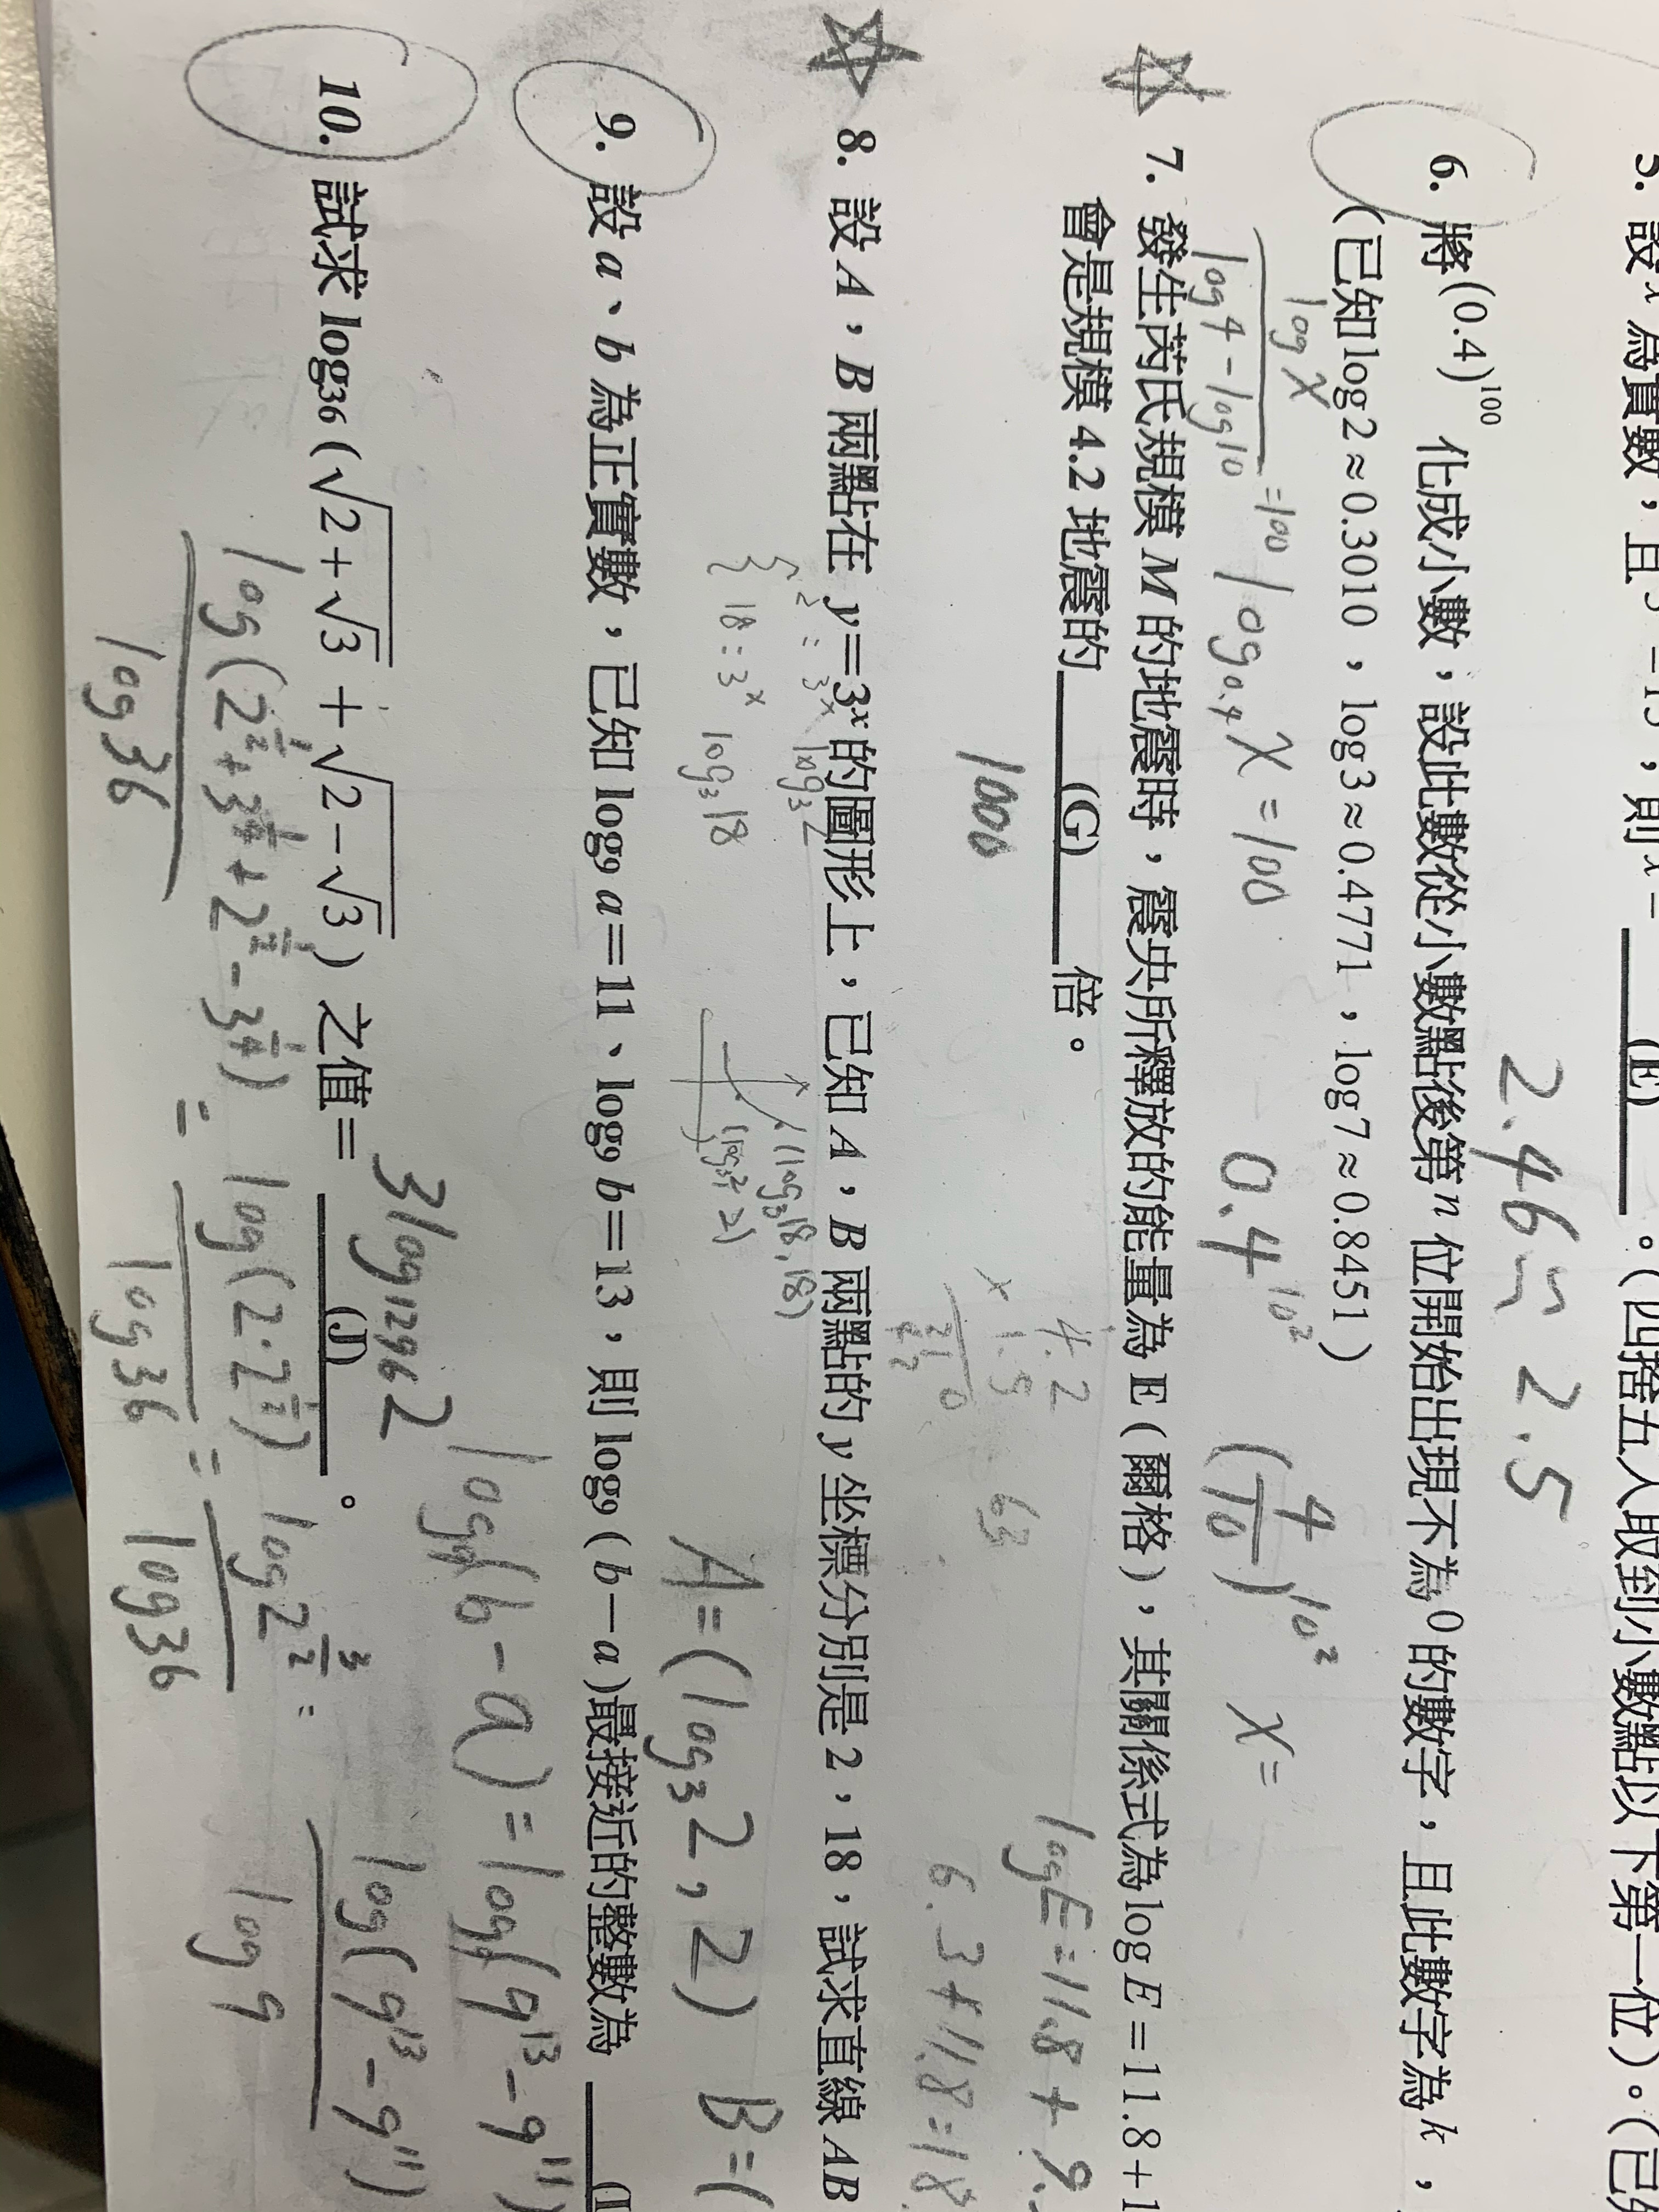 5. 設 x 為實數，且 5 = 15，則 x = (E) 。(四捨五入取到小數點以下第一位)。(已
2.46 2.5
6. 將 (0.4)^100 化成小數，設此數從小數點後第 n 位開始出現不為 0 的數字，且此數字為 k，
(已知 log2≈0.3010，log3≈0.4771，log7≈0.8451)
log x / log4-log10 =100 log0.4 x=100 0.4^10² (4/10)^10² x=
7. 發生芮氏規模 M 的地震時，震央所釋放的能量為 E (爾格)，其關係式為 log E = 11.8+1
會是規模 4.2 地震的 (G) 倍。
1000
4.2
× 1.5
210
42
63
logE=11.8+
6.3+11.8=18.
8. 設 A，B 兩點在 y=3^x 的圖形上，已知 A，B 兩點的 y 坐標分別是 2，18，試求直線 AB
2=3^x log3 2
18=3^x log3 18
(log3 18, 18)
(log3 2, 2)
A=(log3 2, 2) B=(
9. 設 a、b 為正實數，已知 log9 a=11、log9 b=13，則 log9 (b-a)最接近的整數為
log9(b-a)=log9(9^13-9^11)
log(9^13-9^11) / log9
3log1296 2
10. 試求 log36 (√(2+√3) + √(2-√3)) 之值= (J) 。
log(2^½+3^¼+2^½-3^¼) / log36 = log(2·2^½) / log36 = log2^3/2 / log36 =